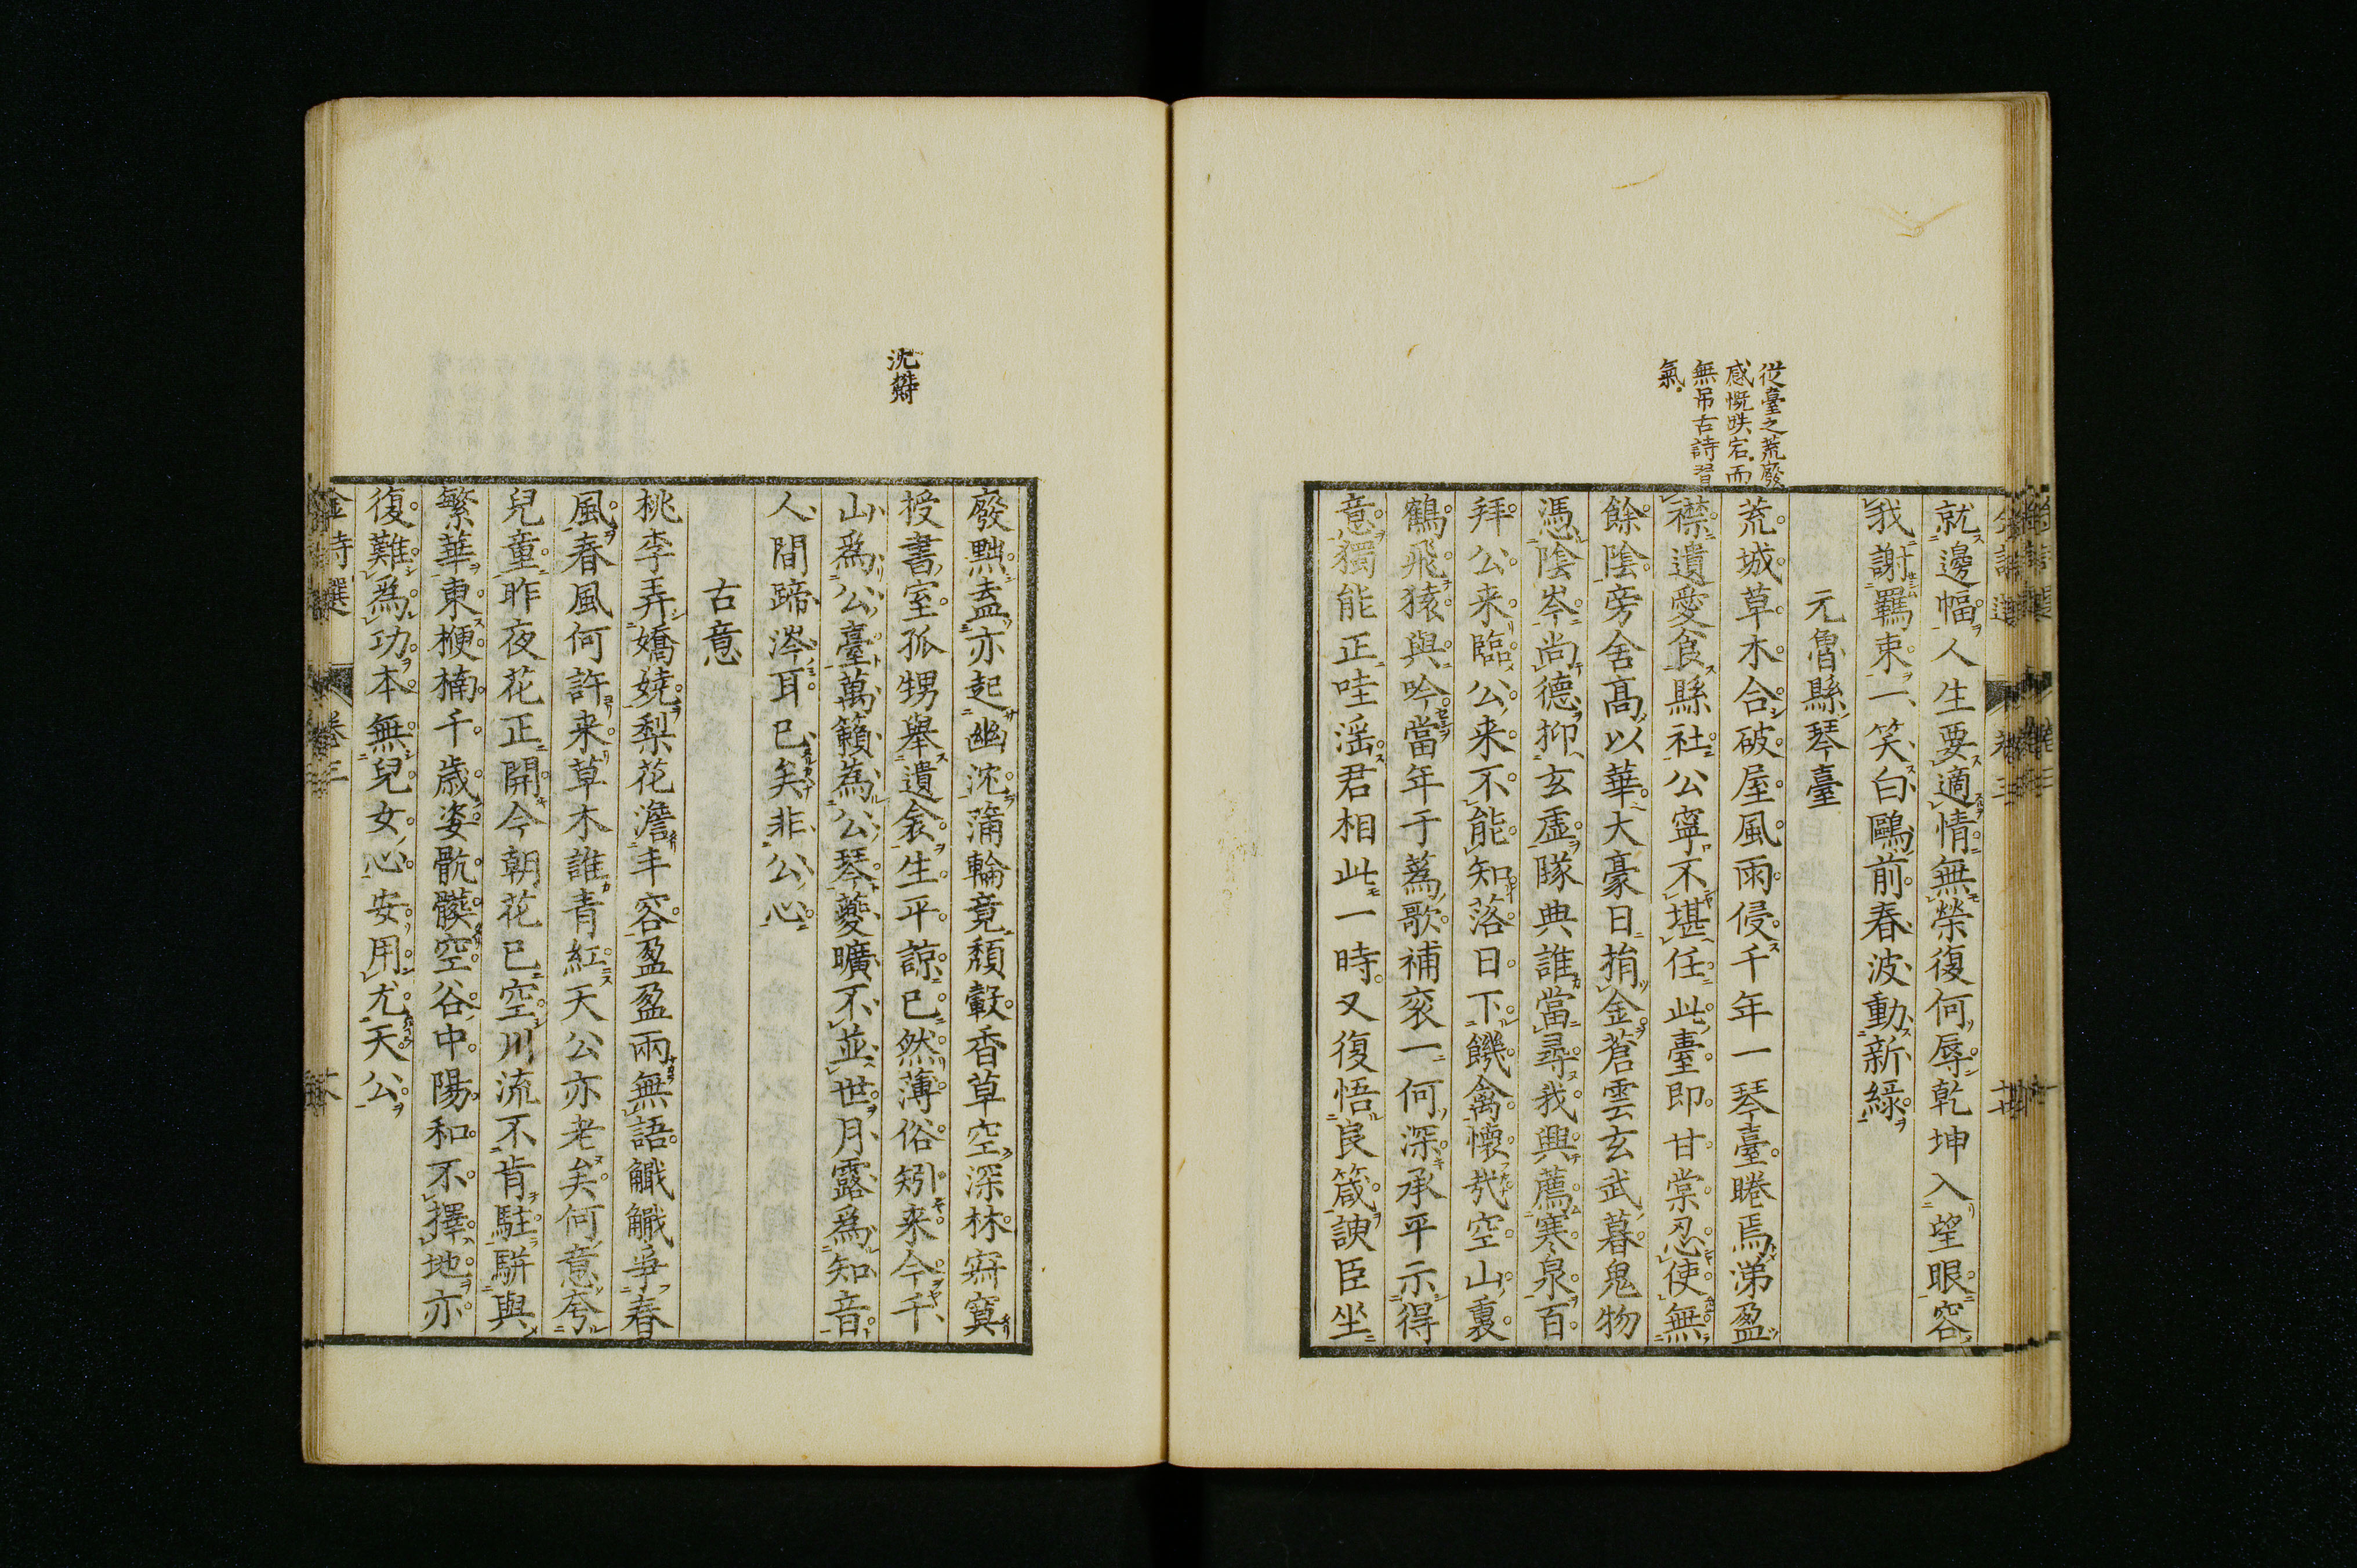 從臺之荒廢
感慨跌宕而
無吊古詩習
氣
就邊幅人生要適情無榮復何辱乾坤入望眼容
我謝羈束一笑白鷗前春波動新綠
元魯縣琴臺
荒城草木合破屋風雨侵千年一琴臺睠焉涕盈
襟遺愛食縣社公寧不堪任此臺即甘棠忍使無
餘陰旁舍高以華大豪日捐金蒼雲玄武暮鬼物
憑陰岑尚德抑玄虛隊典誰當尋我興薦寒泉百
拜公来臨公来不能知落日下饑禽懷哉空山裏
鶴飛猿與吟當年于蒍歌補衮一何深承平示得
意獨能正哇滛君相此一時又復悟良箴諛臣坐
沈欝
廢黜盍亦起幽沈蒲輪竟頹轂香草空深林寂寞
授書室孤甥舉遺衾生平諒已然薄俗矧来今千
山為公臺萬籟為公琴夔曠不並世月露為知音
人間蹄涔耳已矣非公心
古意
桃李弄嬌嬈梨花澹丰容盈盈兩無語觽觽爭春
風春風何許来草木誰青紅天公亦老矣何意夸
兒童昨夜花正開今朝花已空川流不肯駐駢與
繁華東楩楠千歲姿骯髒空谷中陽和不擇地亦
復難為功本無兒女心安用尤天公
金詩選 卷三